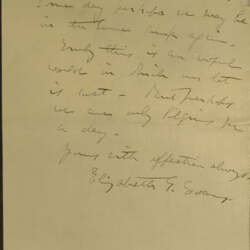 Some day perhaps we may be
in the times again.
Surely this is an awful
world in which our lot
is cast - But perhaps
we are only Pilgrims for
a day.
Yours with affection always
Elizabeth G. Evans